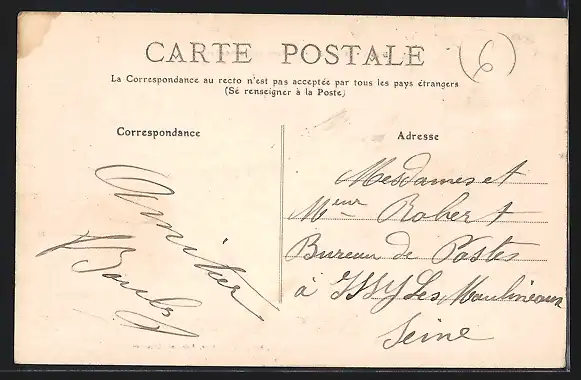 CARTE POSTALE
(6)
La Correspondance au recto n'est pas acceptée par tous les pays étrangers
(Se renseigner à la Poste)
Correspondance
Adresse
Amitiés
Mesdames et
Meur Robert
Bureau de Postes
à ISSY Les Moulineaux
Seine